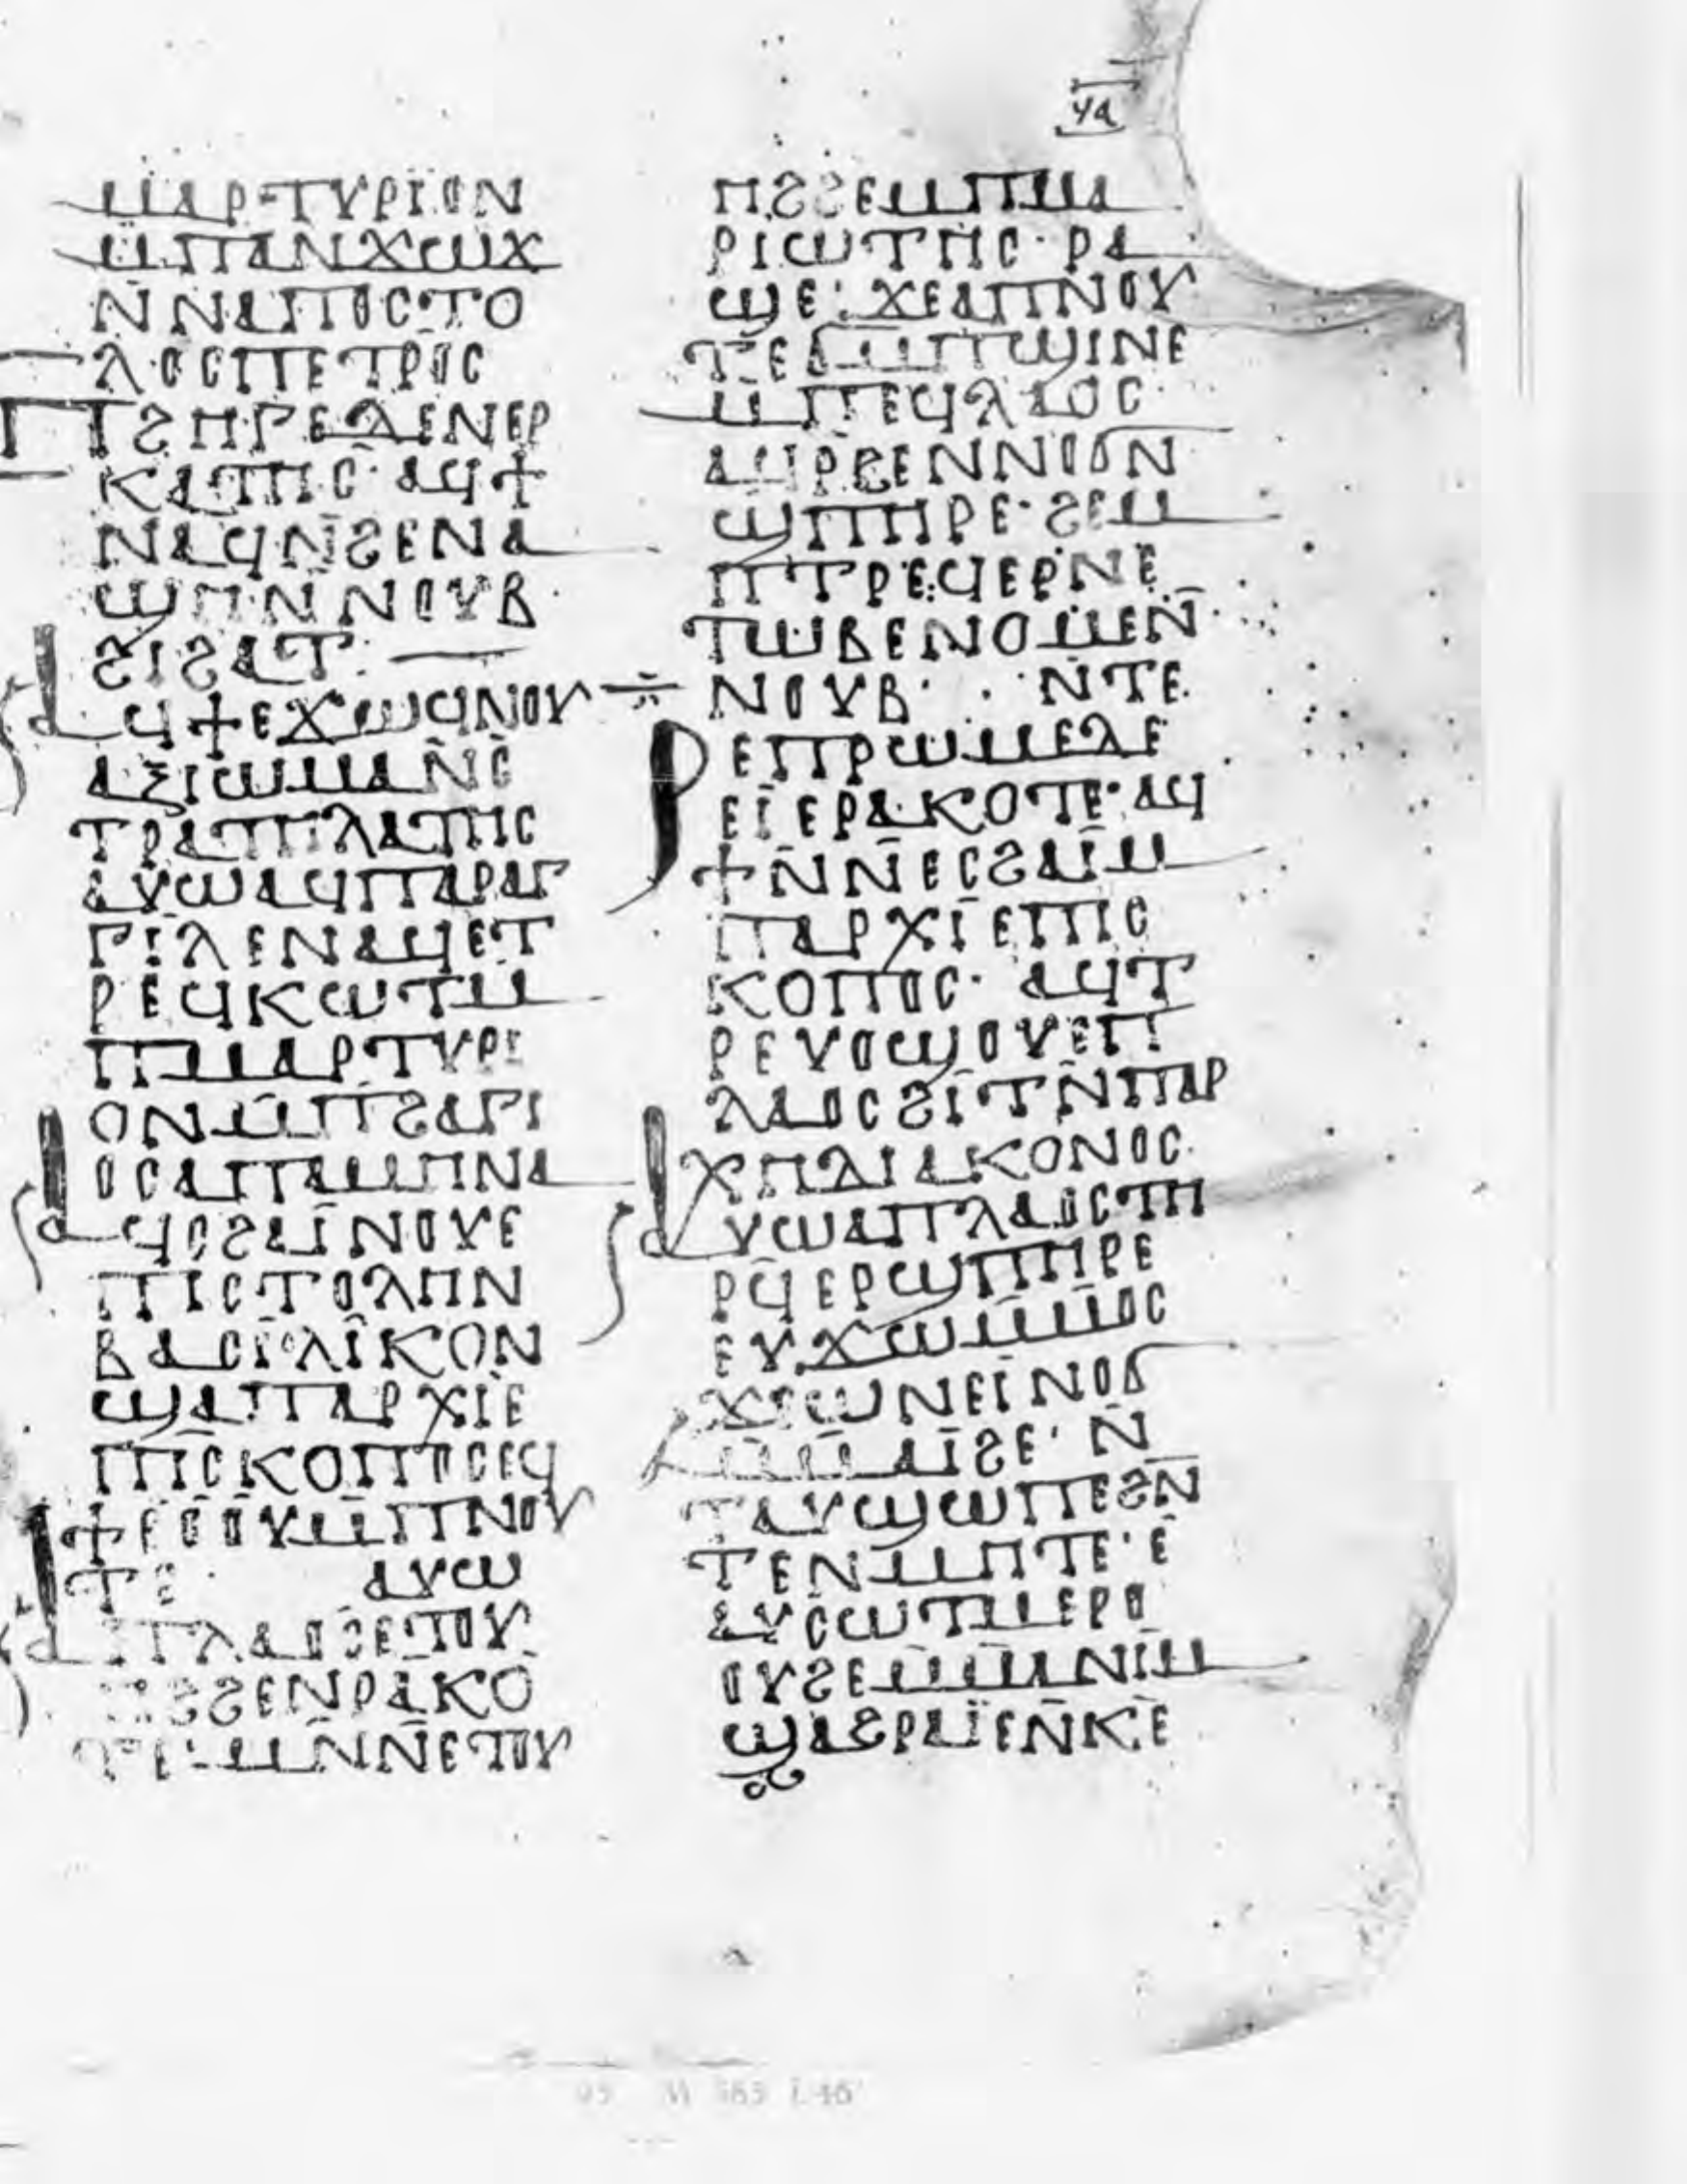 ϥⲁ
ⲙⲁⲣⲧⲩⲣⲓⲟⲛ
ⲙ̄ⲡⲁⲛϫⲱϫ
ⲛ̄ⲛⲁⲡⲟⲥⲧⲟ
ⲗⲟⲥⲡⲉⲧⲣⲟⲥ
ⲡϩⲏⲅⲉⲙⲉⲛⲉⲣ
ⲕⲁⲧⲏⲥ· ⲁϥϯ
ⲛⲁϥⲛ̄ϩⲉⲛⲁ
ϣⲏⲛ̄ⲛⲟⲩⲃ·
ϩⲓϩⲁⲧ:—
ⲁϥϯⲉϫⲱϥⲛⲟⲩ
ⲁⲝⲓⲱⲙⲁⲛ̄ⲥ̄
ⲧⲣⲁⲧⲏⲗⲁⲧⲏⲥ
ⲁⲩⲱⲁϥⲡⲁⲣⲁⲅ
ⲅⲓⲗⲉⲛⲁϥⲉⲧ
ⲣⲉϥⲕⲱⲧⲙ̄
ⲡⲙⲁⲣⲧⲩⲣⲓ
ⲟⲛⲙ̄ⲡϩⲁⲅⲓ
ⲟⲥⲁⲡⲁⲙⲏⲛⲁ
ⲁϥⲥϩⲁⲓ̈ⲛⲟⲩⲉ
ⲡⲓⲥⲧⲟⲗⲏⲛ
ⲃⲁⲥⲓⲗⲓⲕⲟⲛ
ϣⲁⲡⲁⲣⲭⲓⲉ
ⲡⲓⲥⲕⲟⲡⲟⲥⲉϥ
ϯⲉⲟⲟⲩⲙ̄ⲡⲛⲟⲩ
ⲧⲉ· ⲁⲩⲱ
ⲁⲡⲗⲁⲟⲥⲉⲧⲟⲩ
ⲏϩϩⲉⲛⲣⲁⲕⲟ
ⲧⲉ· ⲙⲛ̄ⲛⲉⲧⲟⲩ
ⲏϩϩⲉⲙⲡⲙⲁ
ⲣⲓⲱⲧⲏⲥ· ⲣⲁ
ϣⲉ· ϫⲉⲁⲡⲛⲟⲩ
ⲧⲉϭⲙ̄ⲡϣⲓⲛⲉ
ⲙ̄ⲡⲉϥⲗⲁⲟⲥ·
ⲁϥⲣ̄ϩⲉⲛⲛⲟϭⲛ̄
ϣⲡⲏⲣⲉ· ϩⲉⲙ
ⲡⲧⲣⲉϥⲉⲣⲛⲉ
ⲧⲱⲃⲉⲛⲟⲙⲉⲛ̄
ⲛⲟⲩⲃ· ⲛ̄ⲧⲉ
ⲣⲉⲡⲣⲱⲙⲉⲇⲉ
ⲉⲓ̈ⲉⲣⲁⲕⲟⲧⲉ· ⲁϥ
ϯⲛ̄ⲛⲉⲥϩⲁⲓ̈ⲙ̄
ⲡⲁⲣⲭⲓⲉⲡⲓⲥ
ⲕⲟⲡⲟⲥ· ⲁϥⲧ
ⲣⲉⲩⲟϣⲟⲩⲉⲡ
ⲗⲁⲟⲥϩⲓⲧⲛ̄ⲡⲁⲣ
ⲭⲏⲇⲓⲁⲕⲟⲛⲟⲥ·
ⲁⲩⲱⲁⲡⲗⲁⲟⲥⲧⲏ
ⲣϥ̄ⲉⲣϣⲡⲏⲣⲉ
ⲉⲩϫⲱⲙ̄ⲙⲟⲥ
ϫⲉⲱⲛⲉⲓ̈ⲛⲟϭ
ⲙ̄ⲙⲁⲓ̈ϩⲉ· ⲛ̄
ⲧⲁⲩϣⲱⲡⲉϩⲛ̄
ⲧⲉⲛⲙⲏⲧⲉ· ⲉ
ⲁⲩⲥⲱⲧⲙⲉⲣⲟ
ⲟⲩϩⲉⲙⲙⲁⲛⲓⲙ
ϣⲁϩⲣⲁⲓ̈ⲉⲛ̄ⲕⲉ